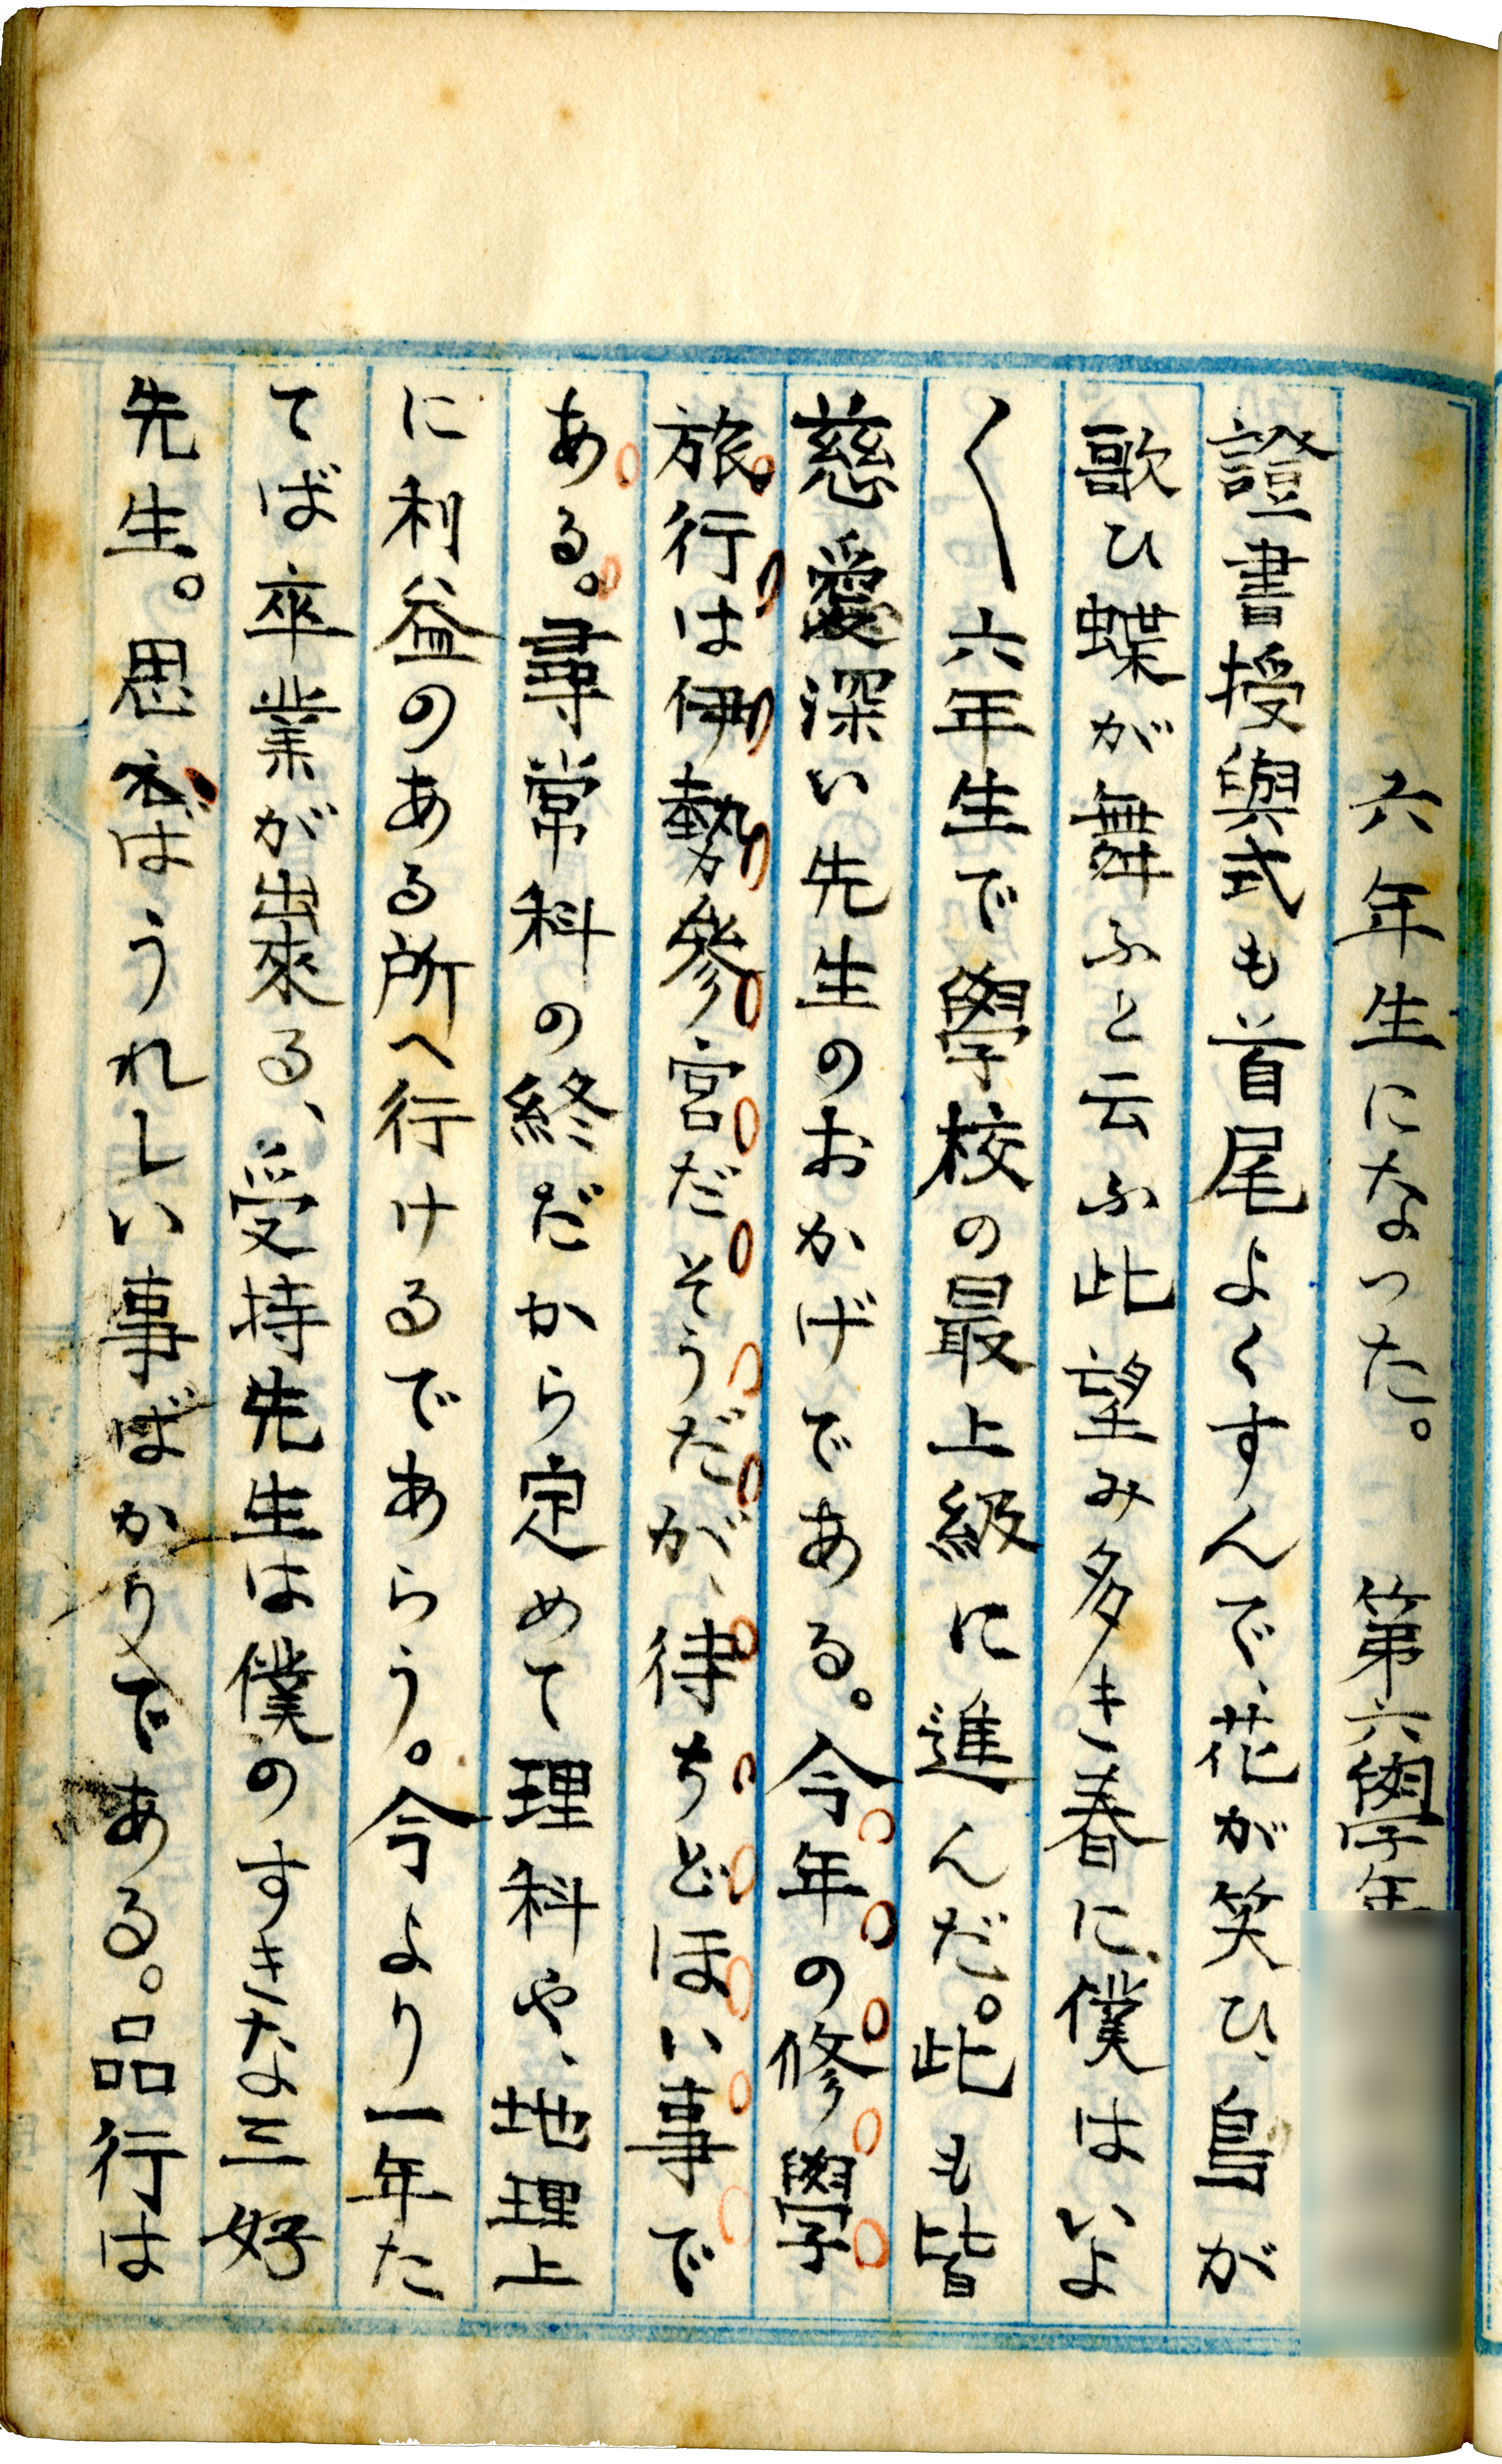 六年生になった。 第六學年
證書授與式も首尾よくすんで、花が笑ひ、鳥が
歌ひ蝶が舞ふと云ふ此望み多き春に、僕はいよ
〱六年生で學校の最上級に進んだ。此も皆
慈愛深い先生のおかげである。今年の修學
旅行は伊勢參宮だそうだが、待ちどほい事で
ある。尋常科の終だから定めて理科や、地理上
に利益のある所へ行けるであらう。今より一年た
てば卒業が出來る、受持先生は僕のすきな三好
先生。思へばうれしい事ばかりである。品行は